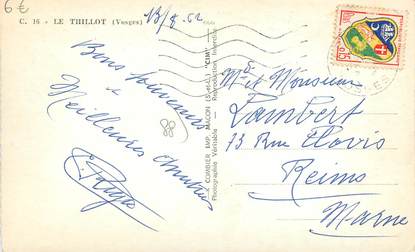 6€
C. 16 - LE THILLOT (Vosges)
13/8/62
Bons souvenirs
Meilleures Amitiés
88
J. COMBIER IMP. MACON (S.-et-L.) "CIM"
Photographie Véritable - Reproduction Interdite
Mr et Monsieur
Lambert
73 Rue Clovis
Reims
Marne